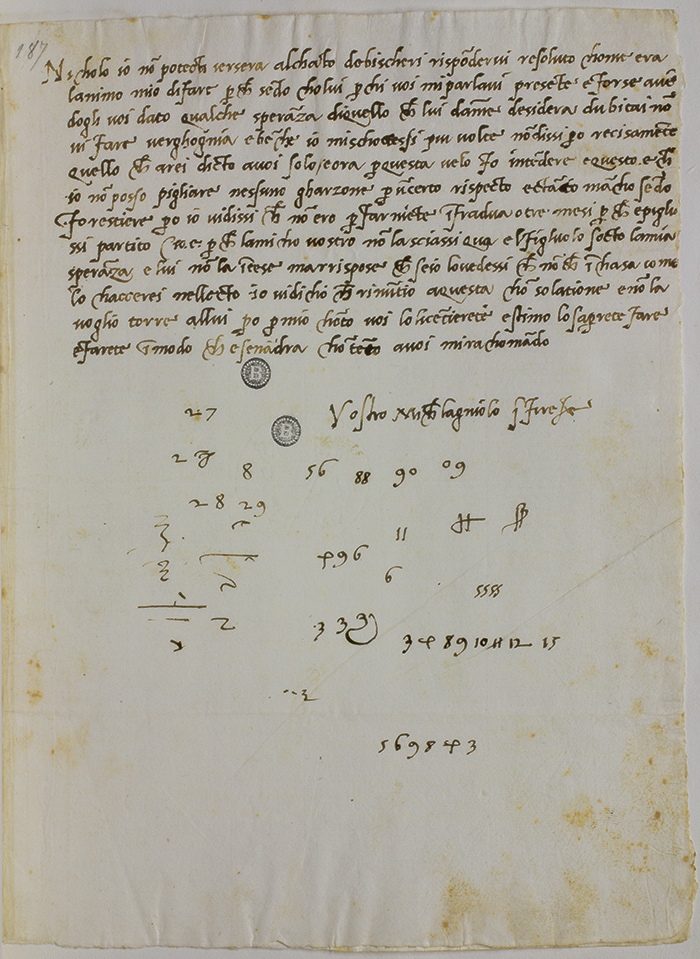 187
Nicholo io nō potecti iersera al chāto de bischeri rispōdervi resoluto chome era
l animo mio di fare p̄ ch̄ sēdo cholui p̄ chi voi mi parlavi presēte e forse avē
dogli voi dato qualche sperāza di quello ch̄ lui da me desidera dubitai nō
vi fare verghognia e bēche io mi schotessi piu volte nō dissi p̄o recisamēte
quello ch̄ arei dicto a voi solo e ora p̄ questa ve lo fo intēdere e questo e ch̄
io nō posso pigliare nessuno gharzone p̄ ū certo rispecto e tāto mācho sēdo
forestiere p̄o io vi dissi ch̄ nō ero p̄ far niēte fra dua o tre mesi p̄ ch̄ e pigliu
ssi partito cioe p̄ ch̄ l amicho vostro nō lasciassi qua el figluolo socto la mia
sperāza e lui nō la itese ma rrispose ch̄ se io lo vedessi ch̄ nō ch̄ ī chasa como
lo chaccerei nel lecto io vi dicho ch̄ rinūtio a questa chōsolatione e nō la
voglio torre a llui p̄o p̄ mio chōto voi lo licētierete e stimo lo saprete fare
e farete ī modo ch̄ e se n ādra chōtēto a voi mi rachomādo
27
Vostro Michelagniolo ī Fireze
2
8 56 88 90 09
28 29
11
496
6
5555
3 39
2
3 4 8 9 10 11 12 15
569843